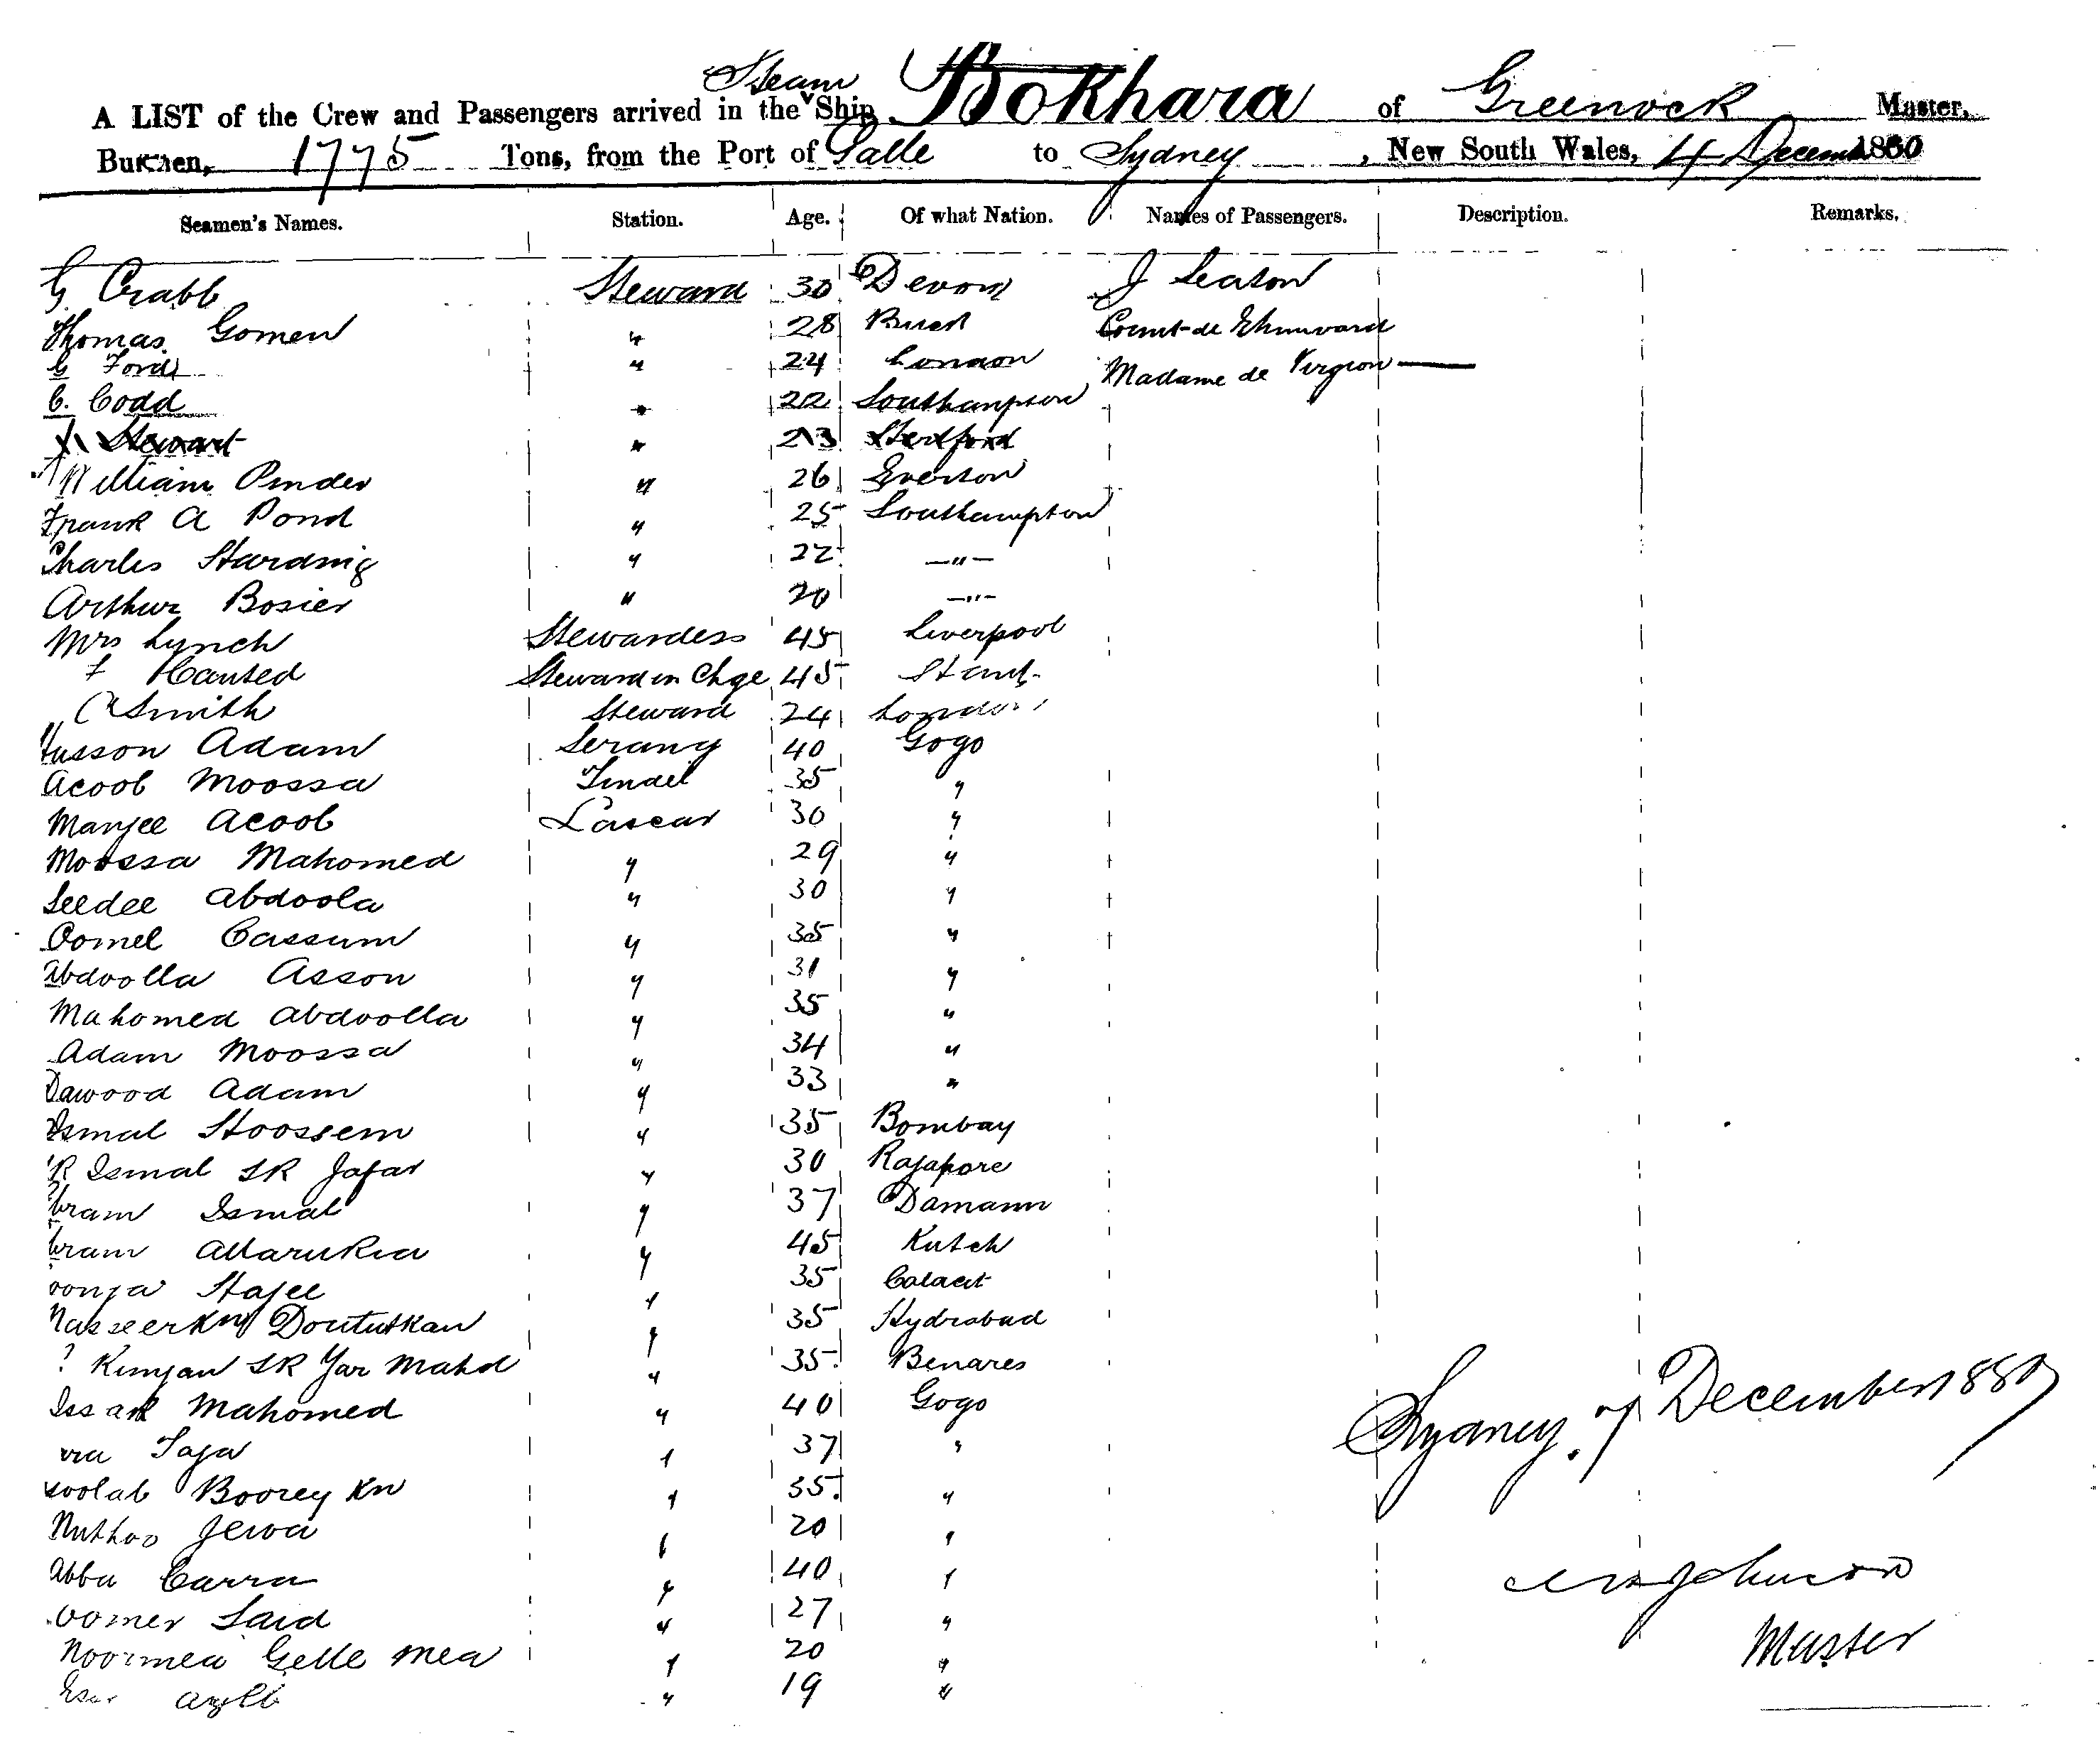 A LIST of the Crew and Passengers arrived in the Steam Ship Bokhara of Greenock Master,
Burthen, 1775 Tons, from the Port of Galle to Sydney, New South Wales, 4 Decem 1880
Seamen's Names. Station. Age. Of what Nation. Names of Passengers. Description. Remarks.
G Crabb Steward 30 Devon J Seaton
Thomas Gomen " 28 Count de
G Ford " 24 London Madame de
C. Codd " 22 Southampton
Stewart " 23 Hertford
William Pinder " 26 Everton
Frank A Pond " 25 Southampton
Charles Harding " 22 —"—
Arthur Bosier " 20 —"—
Mrs Lynch Stewardess 45 Liverpool
Steward in Chge 45
Smith Steward 24 London
Husson Adam Serang 40 Gogo
Acoob Moossa Tindel 35 "
Manjee Acoob Lascar 30 "
Moossa Mahomed " 29 "
Seedee Abdoola " 30 "
Oomel Cassum " 35 "
Abdoolla Asson " 31 "
Mahomed Abdoolla " 35 "
Adam Moossa " 34 "
Dawood Adam " 33 "
Esmal Hoossem " 35 Bombay
Esmal SR Jafar " 30 Rajapore
Esmal " 37 Damann
" 45 Kutch
Hajee " 35
" 35 Hydrabad
SR Yar Mahd " 35 Benares
Issak Mahomed " 40 Gogo
" 37 "
Boorey Kn " 35 "
Nuthoo Jewa " 20 "
Abba Carra " 40 "
Oomer Said " 27 "
Noormea Gelle Mea " 20 "
" 19 "
Sydney. 7 December 1880
Johnson
Master